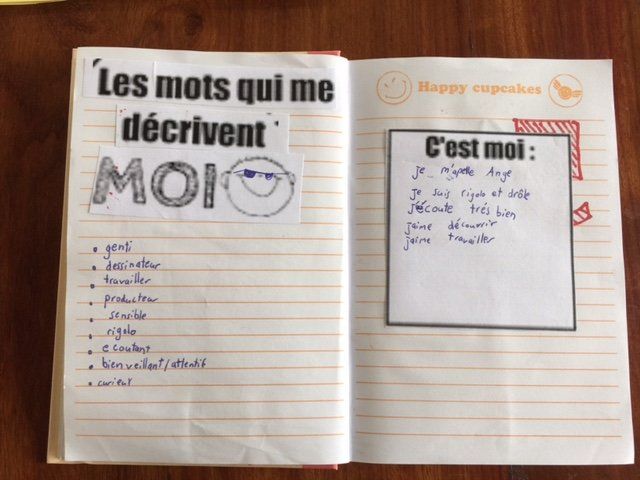 Les mots qui me
décrivent
MOI
• genti
• dessinateur
• travailler
• producteur
• sensible
• rigolo
• ecoutant
• bienveillant/attentif
• curieux
Happy cupcakes
C'est moi :
je m'apelle Ange
je suis rigolo et drôle
j'écoute trés bien
j'aime découvrir
j'aime travailler